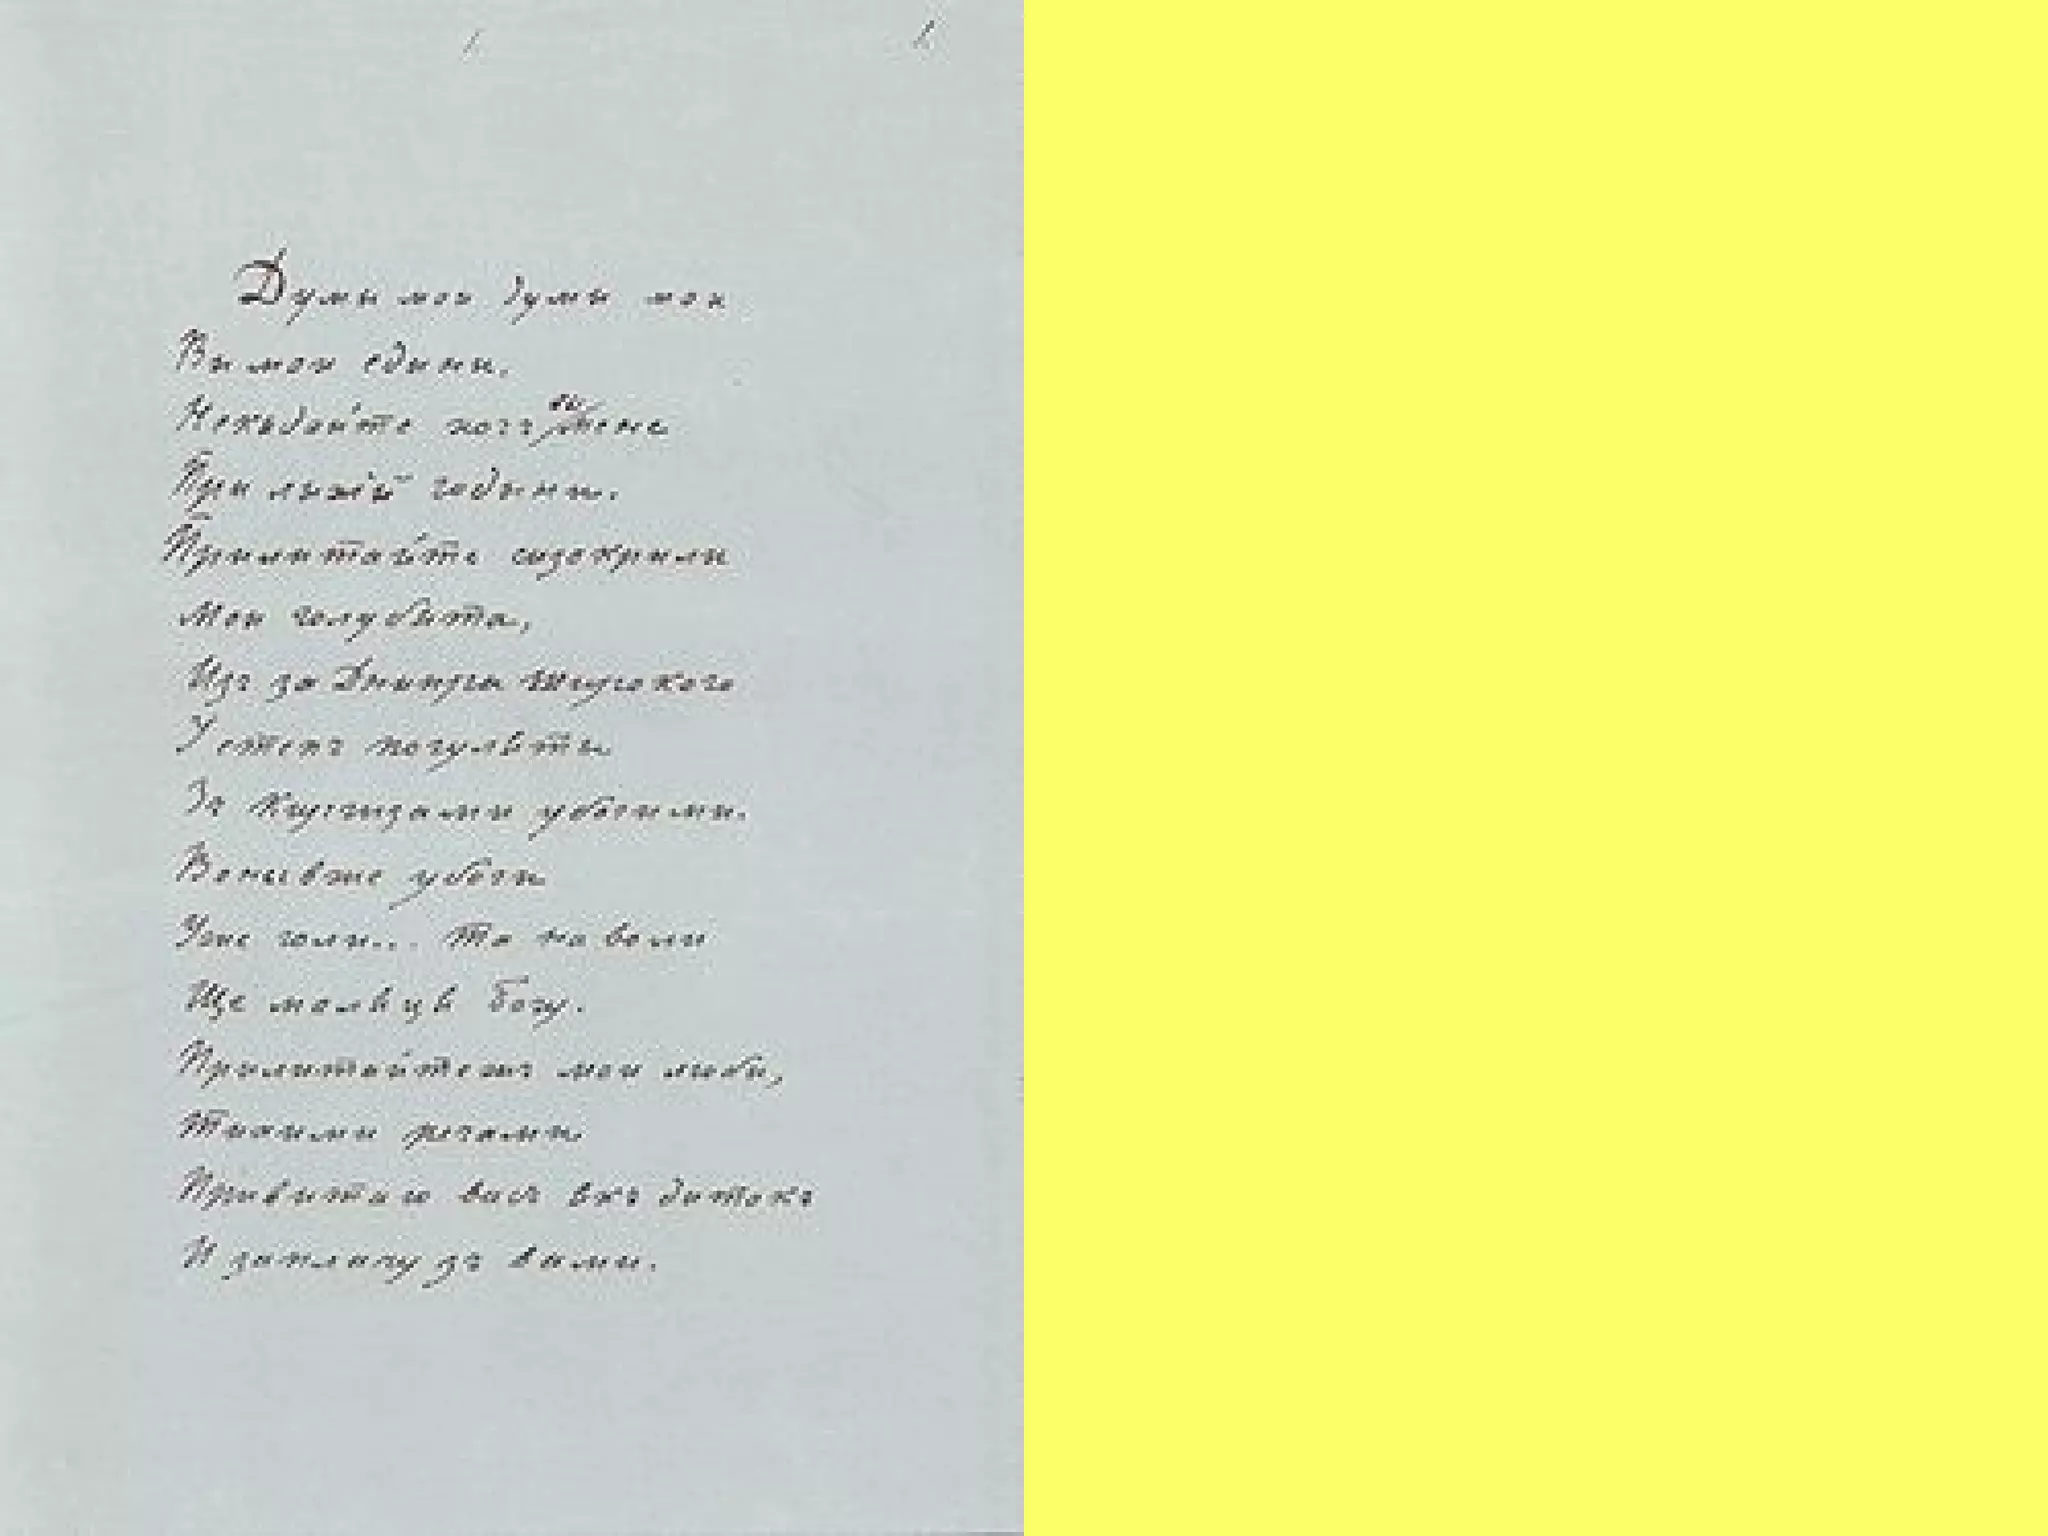 1.
1.
Думы мои думы мои
Вы мои едыни.
Некыдайте хочъ вы мене
При лыхій годыни.
Прилитайте сызокрыли
Мои голубята,
Изъ за Днипра широкого
У степъ погулять
Зъ Киргизами убогими.
Вони вже убоги
Уже голи... Та на воли
Ще моляця Богу.
Прилитайтежъ мои люби,
Тихими речами
Привитаю васъ якъ дитокъ
И заплачу зъ вами.